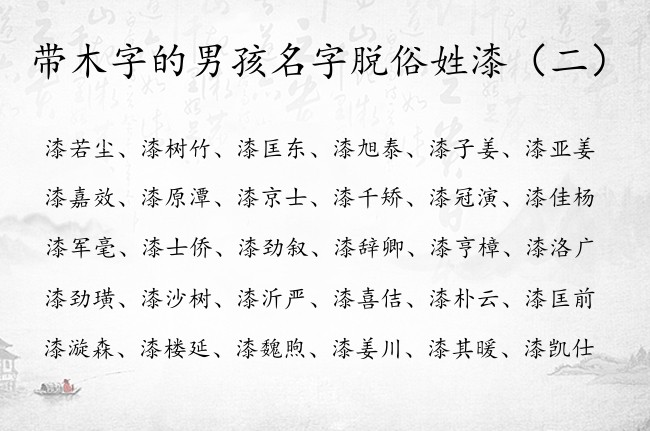 带木字的男孩名字脱俗姓漆（二）
漆若尘、漆树竹、漆匡东、漆旭泰、漆子姜、漆亚姜
漆嘉效、漆原潭、漆京士、漆千矫、漆冠演、漆佳杨
漆军毫、漆士侨、漆劲叙、漆辞卿、漆亨樟、漆洛广
漆劲璜、漆沙树、漆沂严、漆喜佶、漆朴云、漆匡前
漆漩森、漆楼延、漆魏煦、漆姜川、漆其暖、漆凯仕